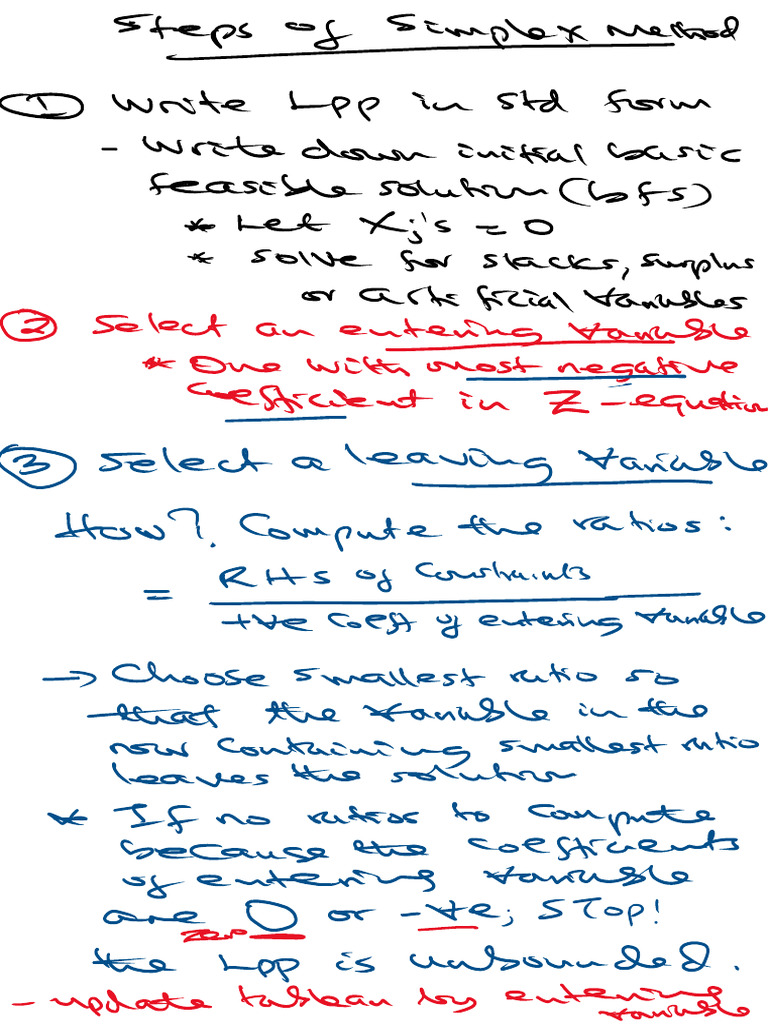 Steps of Simplex Method
① Write Lpp in Std form
- Write down initial basic
feasible solution (bfs)
* Let Xj's = 0
* Solve for slacks, surplus
or Artificial Variables
② Select an entering Variable
* One with most negative
coefficient in Z-equation
③ Select a leaving Variable
How?. Compute the ratios:
= RHS of Constraints
+ve coeff of entering variable
→ Choose smallest ratio so
that the variable in the
row containing smallest ratio
leaves the solution
* If no ratios to compute
because the coefficients
of entering variable
are 0 or -ve; STOP!
zero
the Lpp is unbounded.
- update tableau by entering
variable